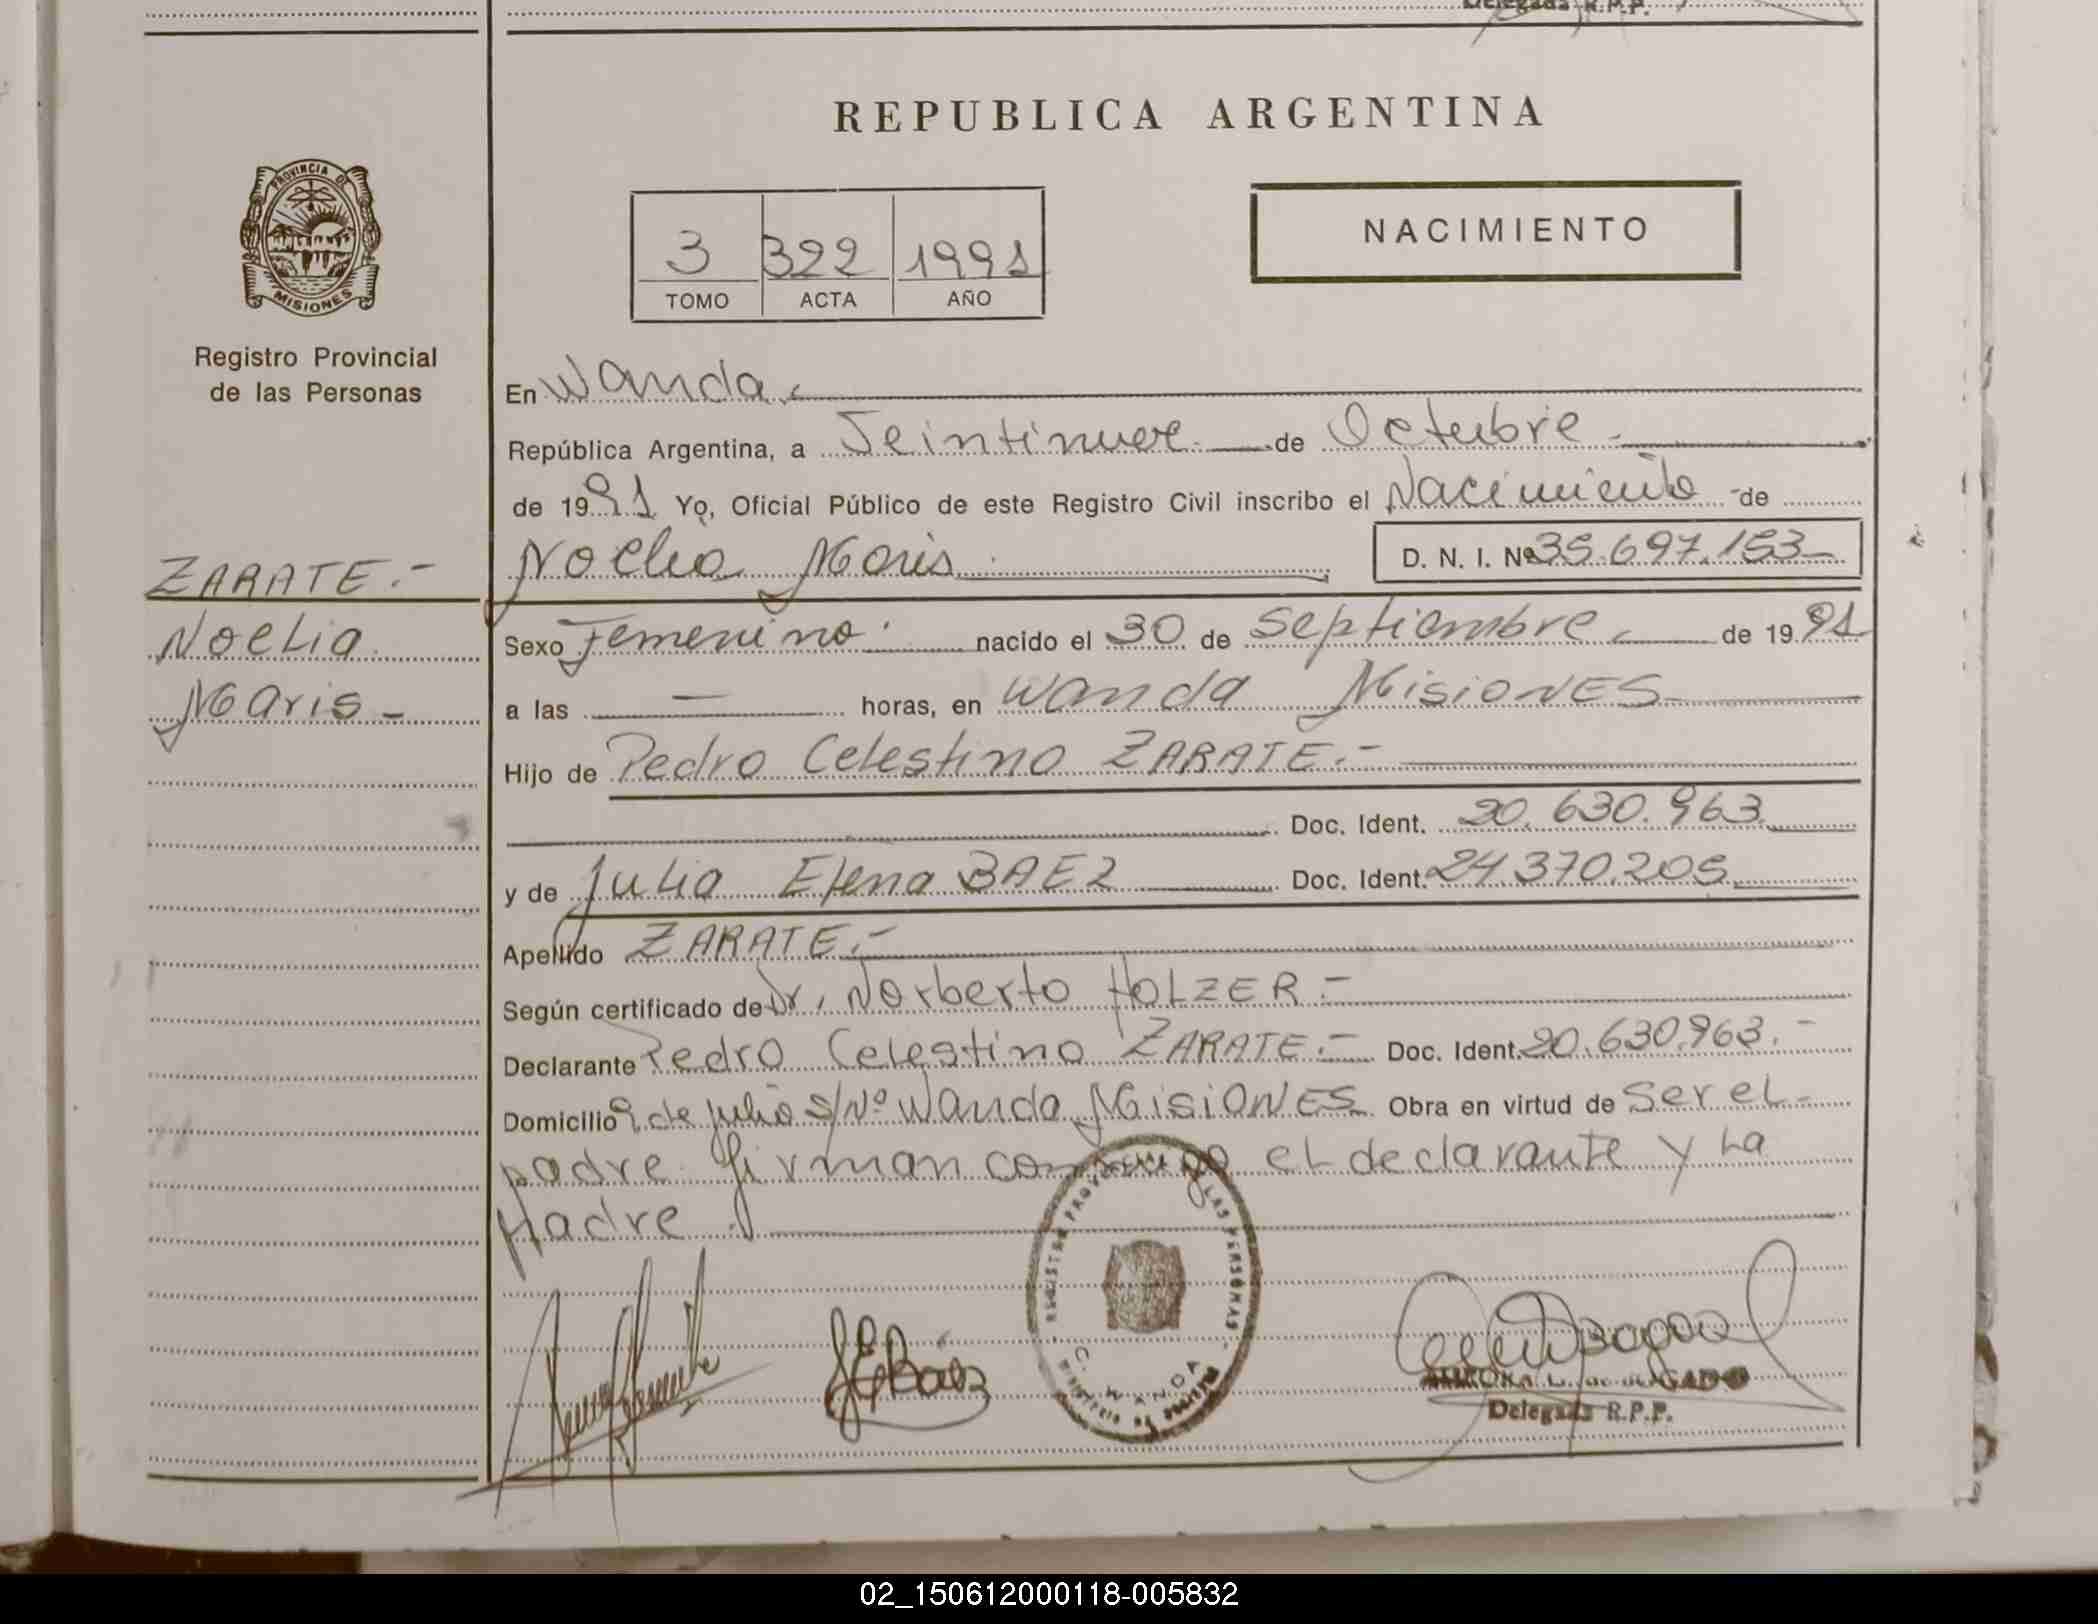 Delegada R.P.P.
REPUBLICA ARGENTINA
PROVINCIA DE
MISIONES
Registro Provincial
de las Personas
3 322 1991
TOMO ACTA AÑO
NACIMIENTO
En Wanda.
República Argentina, a Veintinueve de Octubre
de 1991 Yo, Oficial Público de este Registro Civil inscribo el Nacimiento de
Noelia Maris D. N. I. Nº 35.697.153
ZARATE.-
Noelia
Maris -
Sexo Femenino nacido el 30 de Septiembre de 1991
a las — horas, en Wanda Misiones
Hijo de Pedro Celestino ZARATE.-
Doc. Ident. 20.630.963
y de Julia Elena BAEZ Doc. Ident. 24.370.205
Apellido ZARATE.-
Según certificado de Dr. Norberto HOLZER.-
Declarante Pedro Celestino ZARATE.- Doc. Ident. 20.630.963.-
Domicilio 9 de julio S/Nº Wanda Misiones Obra en virtud de ser el
padre firman conmigo el declarante y la
Madre.
REGISTRO PROVINCIAL DE LAS PERSONAS
WANDA
JEBáez
Delegada R.P.P.
02_150612000118-005832